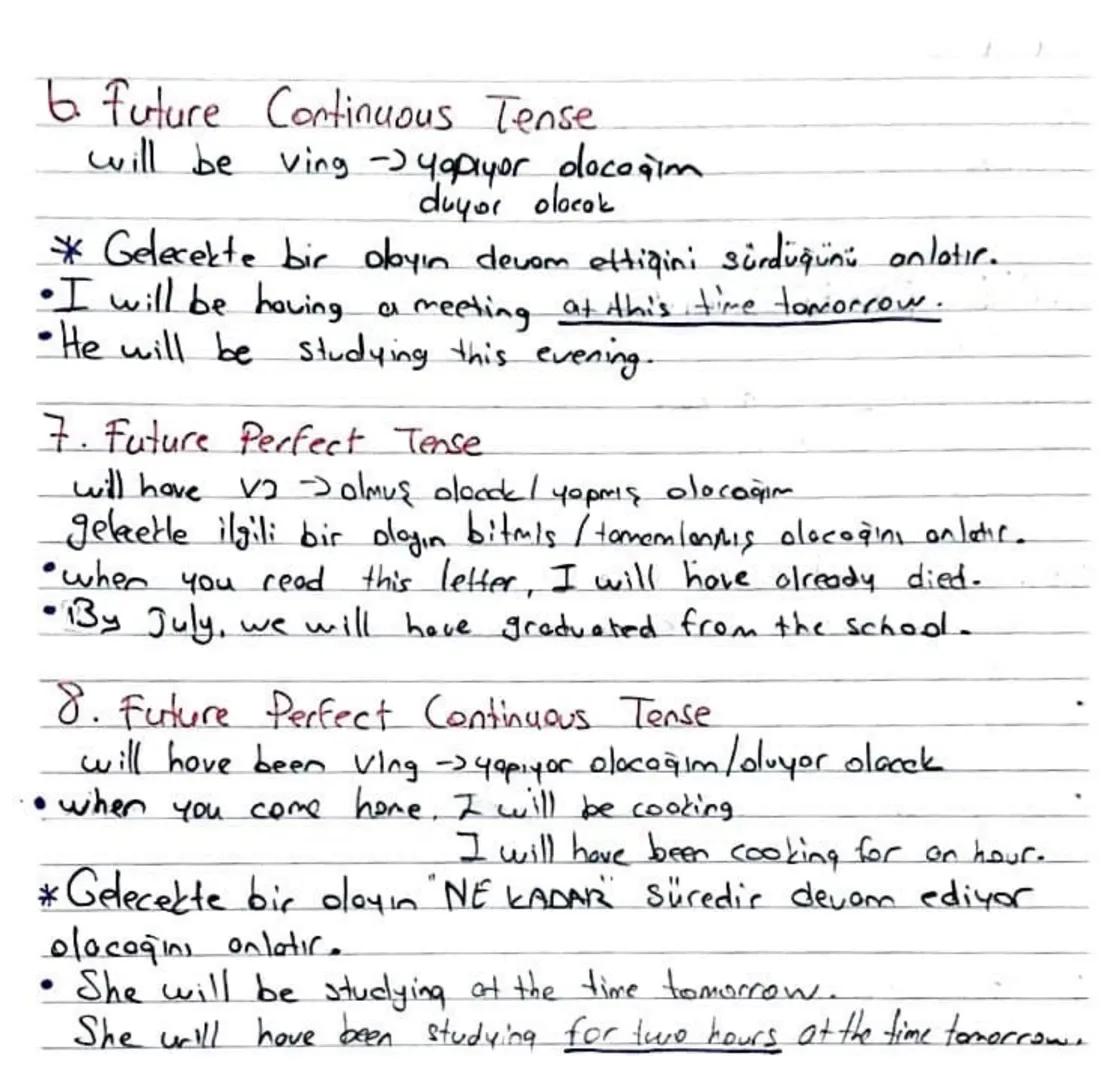 6. Future Continuous Tense
will be Ving -> yapıyor olacağım
duyor olacak
* Gelecekte bir olayın devam ettiğini sürdüğünü anlatır.
• I will be having a meeting at this time tomorrow.
• He will be studying this evening.
7. Future Perfect Tense
will have V3 -> olmuş olacak / yapmış olacağım
gelecekle ilgili bir olayın bitmiş / tamamlanmış olacağını anlatır.
• when you read this letter, I will have already died.
• By July, we will have graduated from the school.
8. Future Perfect Continuous Tense
will have been Ving -> yapıyor olacağım/oluyor olacak
• when you come home, I will be cooking
I will have been cooking for an hour.
* Gelecekte bir olayın "NE KADAR" süredir devam ediyor
olacağını anlatır.
• She will be studying at the time tomorrow.
She will have been studying for two hours at the time tomorrow.